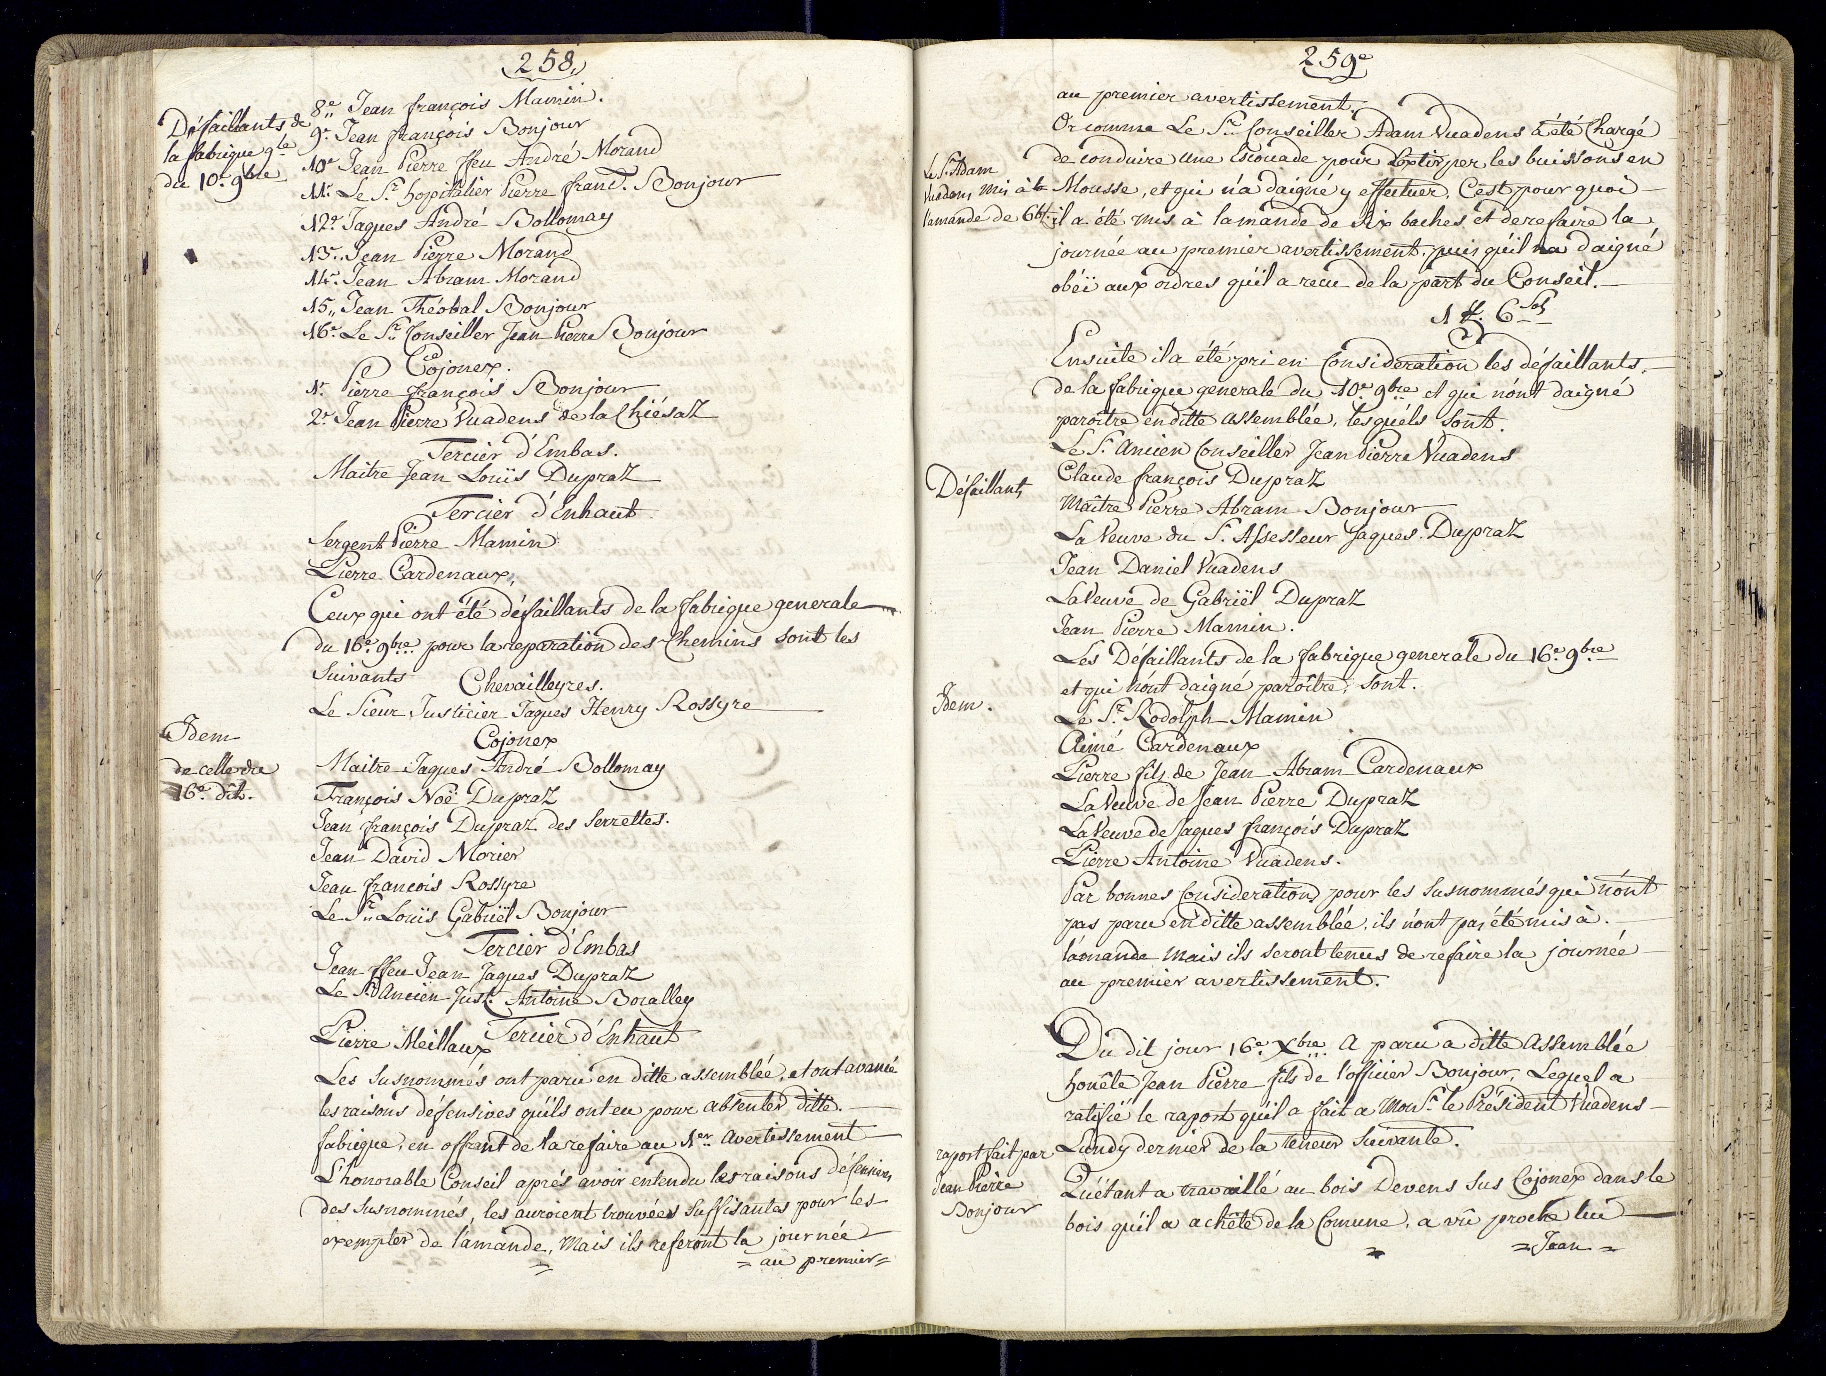 258
Défaillants de
la fabrique g.le
du 10.e 9bre
8.e Jean françois Mamin.
9.e Jean françois Bonjour
10.e Jean Pierre ffeu André Morand
11.e Le S.r hopitalier Pierre franç. Bonjour
12.e Jaques André Bollomay
13.e Jean Pierre Morand
14.e Jean Abram Morand
15,, Jean Théobal Bonjour
16.e Le S.r Conseiller Jean Pierre Bonjour
Cojonex.
1.r Pierre françois Bonjour
2.e Jean Pierre Vuadens de la Chiésaz
Tercier d'Embas.
Maitre Jean Louïs Dupraz
Tercier d'Enhaut
Sergent Pierre Mamin
Pierre Cardenaux,
Ceux qui ont été défaillants de la fabrique generale
du 16.e 9bre pour la reparation des Chemins sont les
Suivants
Chevailleyres.
Le Sieur Justicier Jaques Henry Rossyre
Idem
de celle du
16.e dit.
Cojonex
Maitre Jaques André Bollomay
François Noë Dupraz
Jean françois Dupraz des Serrettes.
Jean David Morier
Jean francois Rossyre
Le S.r Louïs Gabriël Bonjour
Tercier d'Embas
Jean ffeu Jean Jaques Dupraz
Le S.r Ancien Just. Antoine Boralley
Tercier d'Enhaut
Pierre Meillaux
Les susnommés ont paru en ditte assemblée, et ont avancé
les raisons défensives qu'ils ont eu pour absenter ditte.
fabrique, en offrant de la refaire au 1er avertissement
L'honorable Conseil aprés avoir entendu les raisons défensives
des susnommés, les auroient trouvées suffisantes pour les
exempter de l'amande, Mais ils referont la journée
= au premier =
259e
au premier avertissement.
Or comme Le S.r Conseiller Adam Vuadens à été Chargé
de conduire une Escouade pour Extirper les buissons en
Mousse, et qui n'a daigné y effectuer. C'est pour quoi
il a été mis à lamande de six baches et de refaire la
journée au premier avertissement. puis qu'il na daigné
obéï aux ordres qu'il a recu de la part du Conseil.
Le S.r Adam
Vuadens mis à
lamande de 6 bz.
1 ff. 6 Sols
Ensuite il a été pri en Consideration les défaillants.
de la fabrique generale du 10.e 9bre et qui n'ont daigné
paroître en ditte assemblée, lesquéls sont.
Le S.r Ancien Conseiller Jean Pierre Vuadens
Défaillants
Claude françois Dupraz
Maître Pierre Abram Bonjour
La Veuve du S.r Assesseur Jaques Dupraz
Jean Daniel Vuadens
La Veuve de Gabriël Dupraz
Jean Pierre Mamin.
Les Défaillants de la fabrique generale du 16.e 9bre
et qui n'ont daigné paroître, sont.
Idem.
Le S.r Rodolph Mamin
Aimé Cardenaux
Pierre fils de Jean Abram Cardenaux
La Veuve de Jean Pierre Dupraz
La Veuve de Jaques françois Dupraz
Pierre Antoine Vuadens.
Par bonnes Considerations pour les susnommés qui n'ont
pas paru en ditte assemblée, ils n'ont pas été mis à
l'amande Mais ils seront tenus de refaire la journée
au premier avertissement.
Du dit jour 16.e Xbre A paru a ditte Assemblée
honête Jean Pierre fils de l'officier Bonjour, Lequel a
ratifié le raport qu'il a fait a Mons.r le Président Vuadens
Lundy dernier de la teneur Suivante.
raport fait par
Jean Pierre
Bonjour
Qu'étant a travaillé au bois Devens sus Cojonex dans le
bois qu'il a achété de la Comune, a vû proche lui
= Jean =